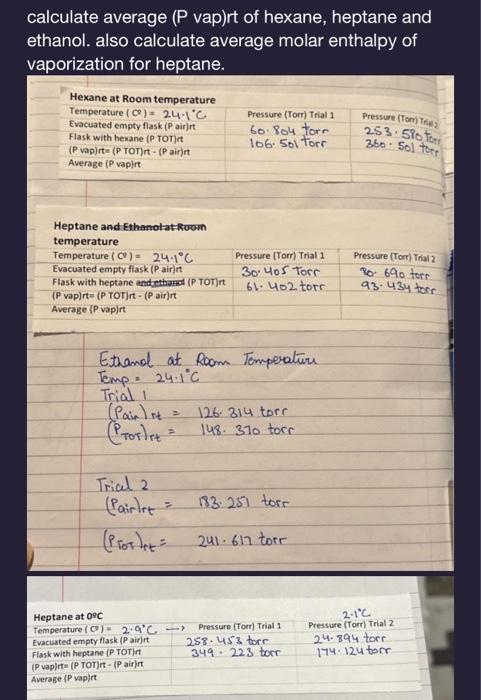 calculate average (P vap)rt of hexane, heptane and
ethanol. also calculate average molar enthalpy of
vaporization for heptane.
Hexane at Room temperature
Temperature ( Cº ) = 24.1°C Pressure (Torr) Trial 1 Pressure (Torr) Trial 2
Evacuated empty flask (P air)rt 60.804 torr 253.580 torr
Flask with hexane (P TOT)rt 106.501 Torr 360.501 torr
(P vap)rt= (P TOT)rt - (P air)rt
Average (P vap)rt
Heptane and Ethanol at Room
temperature
Temperature ( Cº ) = 24.1°C Pressure (Torr) Trial 1 Pressure (Torr) Trial 2
Evacuated empty flask (P air)rt 30.405 Torr 80.690 torr
Flask with heptane and ethanol (P TOT)rt 61.402 torr 93.434 torr
(P vap)rt= (P TOT)rt - (P air)rt
Average (P vap)rt
Ethanol at Room Temperature
Temp = 24.1°C
Trial 1
(Pair)rt = 126.314 torr
(PTOT)rt = 148.370 torr
Trial 2
(Pair)rt = 183.251 torr
(PTOT)rt = 241.617 torr
Heptane at 0ºC 2.1°C
Temperature ( Cº ) = 2.9°C → Pressure (Torr) Trial 1 Pressure (Torr) Trial 2
Evacuated empty flask (P air)rt 258.453 torr 24.894 torr
Flask with heptane (P TOT)rt 349.223 torr 174.124 torr
(P vap)rt= (P TOT)rt - (P air)rt
Average (P vap)rt